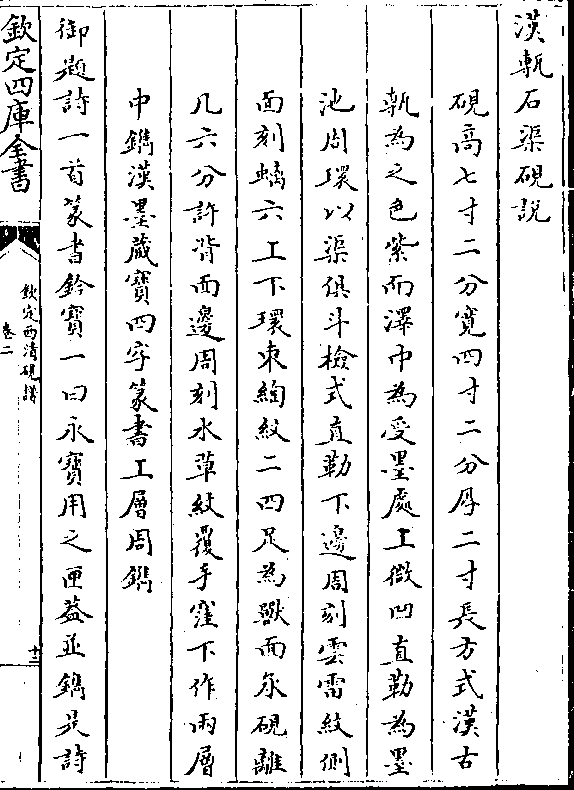 漢甎石渠硯說
硯高七寸二分寛四寸二分厚二寸長方式漢古
甎為之色紫而澤中為受墨處上微凹直勒為墨
池周環以渠俱斗檢式直勒下邊周刻雲雷紋側
面刻螭六上下環束絢紋二四足為獸面承硯離
几六分許背面邊周刻水草紋覆手窪下作兩層
中鐫漢墨藏寳四字篆書上層周鐫
御題詩一首篆書鈐寳一曰永寳用之匣葢並鐫是詩
欽定四庫全書
欽定西清硯譜
卷二
十三